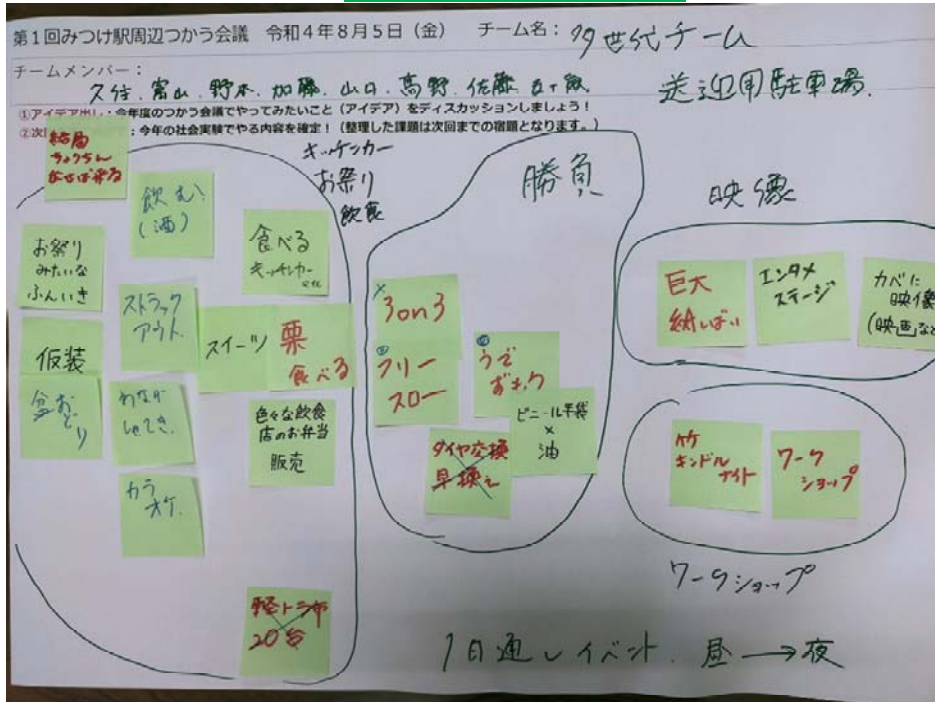 第1回みつけ駅周辺つかう会議 令和4年8月5日(金) チーム名:
多世代チーム
チームメンバー:
久住、富山、野本、加藤、山口、高野、佐藤
送迎用駐車場.
①アイデア出し:今年度のつかう会議でやってみたいこと(アイデア)をディスカッションしましょう!
:今年の社会実験でやる内容を確定!(整理した課題は次回までの宿題となります。)
結局
ちょうちん
なせば来る
キッチンカー
お祭り
飲食
飲む!
(酒)
お祭り
みたいな
ふんいき
食べる
キッチンカー
ストラック
アウト.
スイーツ
栗
食べる
仮装
盆おどり
わなげ
しゃてき.
色々な飲食
店のお弁当
販売
カラ
オケ.
軽トラ市
20台
勝負
3on3
フリー
スロー
うで
ずもう
ビニール手袋
×
油
タイヤ交換
早換え
映像
巨大
紙しばい
エンタメ
ステージ
カベに
映像
(映画など
竹
キャンドル
ナイト
ワーク
ショップ
ワークショップ
1日通しイベント. 昼→夜